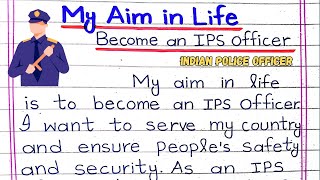 My Aim in Life
Become an IPS Officer
INDIAN POLICE OFFICER
My aim in life
is to become an IPS Officer.
I want to serve my country
and ensure people's safety
and security. As an IPS